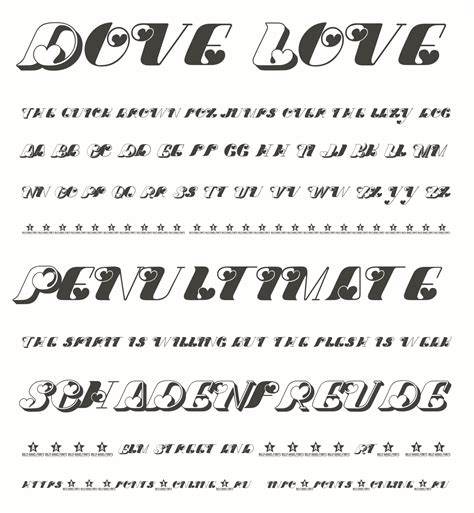 DOVE LOVE
THE QUICK BROWN FOX JUMPS OVER THE LAZY DOG
AA BB CC DD EE FF GG HH II JJ KK LL MM
NN OO PP QQ RR SS TT UU VV WW XX YY ZZ
PENULTIMATE
THE SPIRIT IS WILLING BUT THE FLESH IS WEAK
SCHADENFREUDE
ELM STREET END RT
HTTPS FONTS ONLINE RU INFO FONTS ONLINE RU